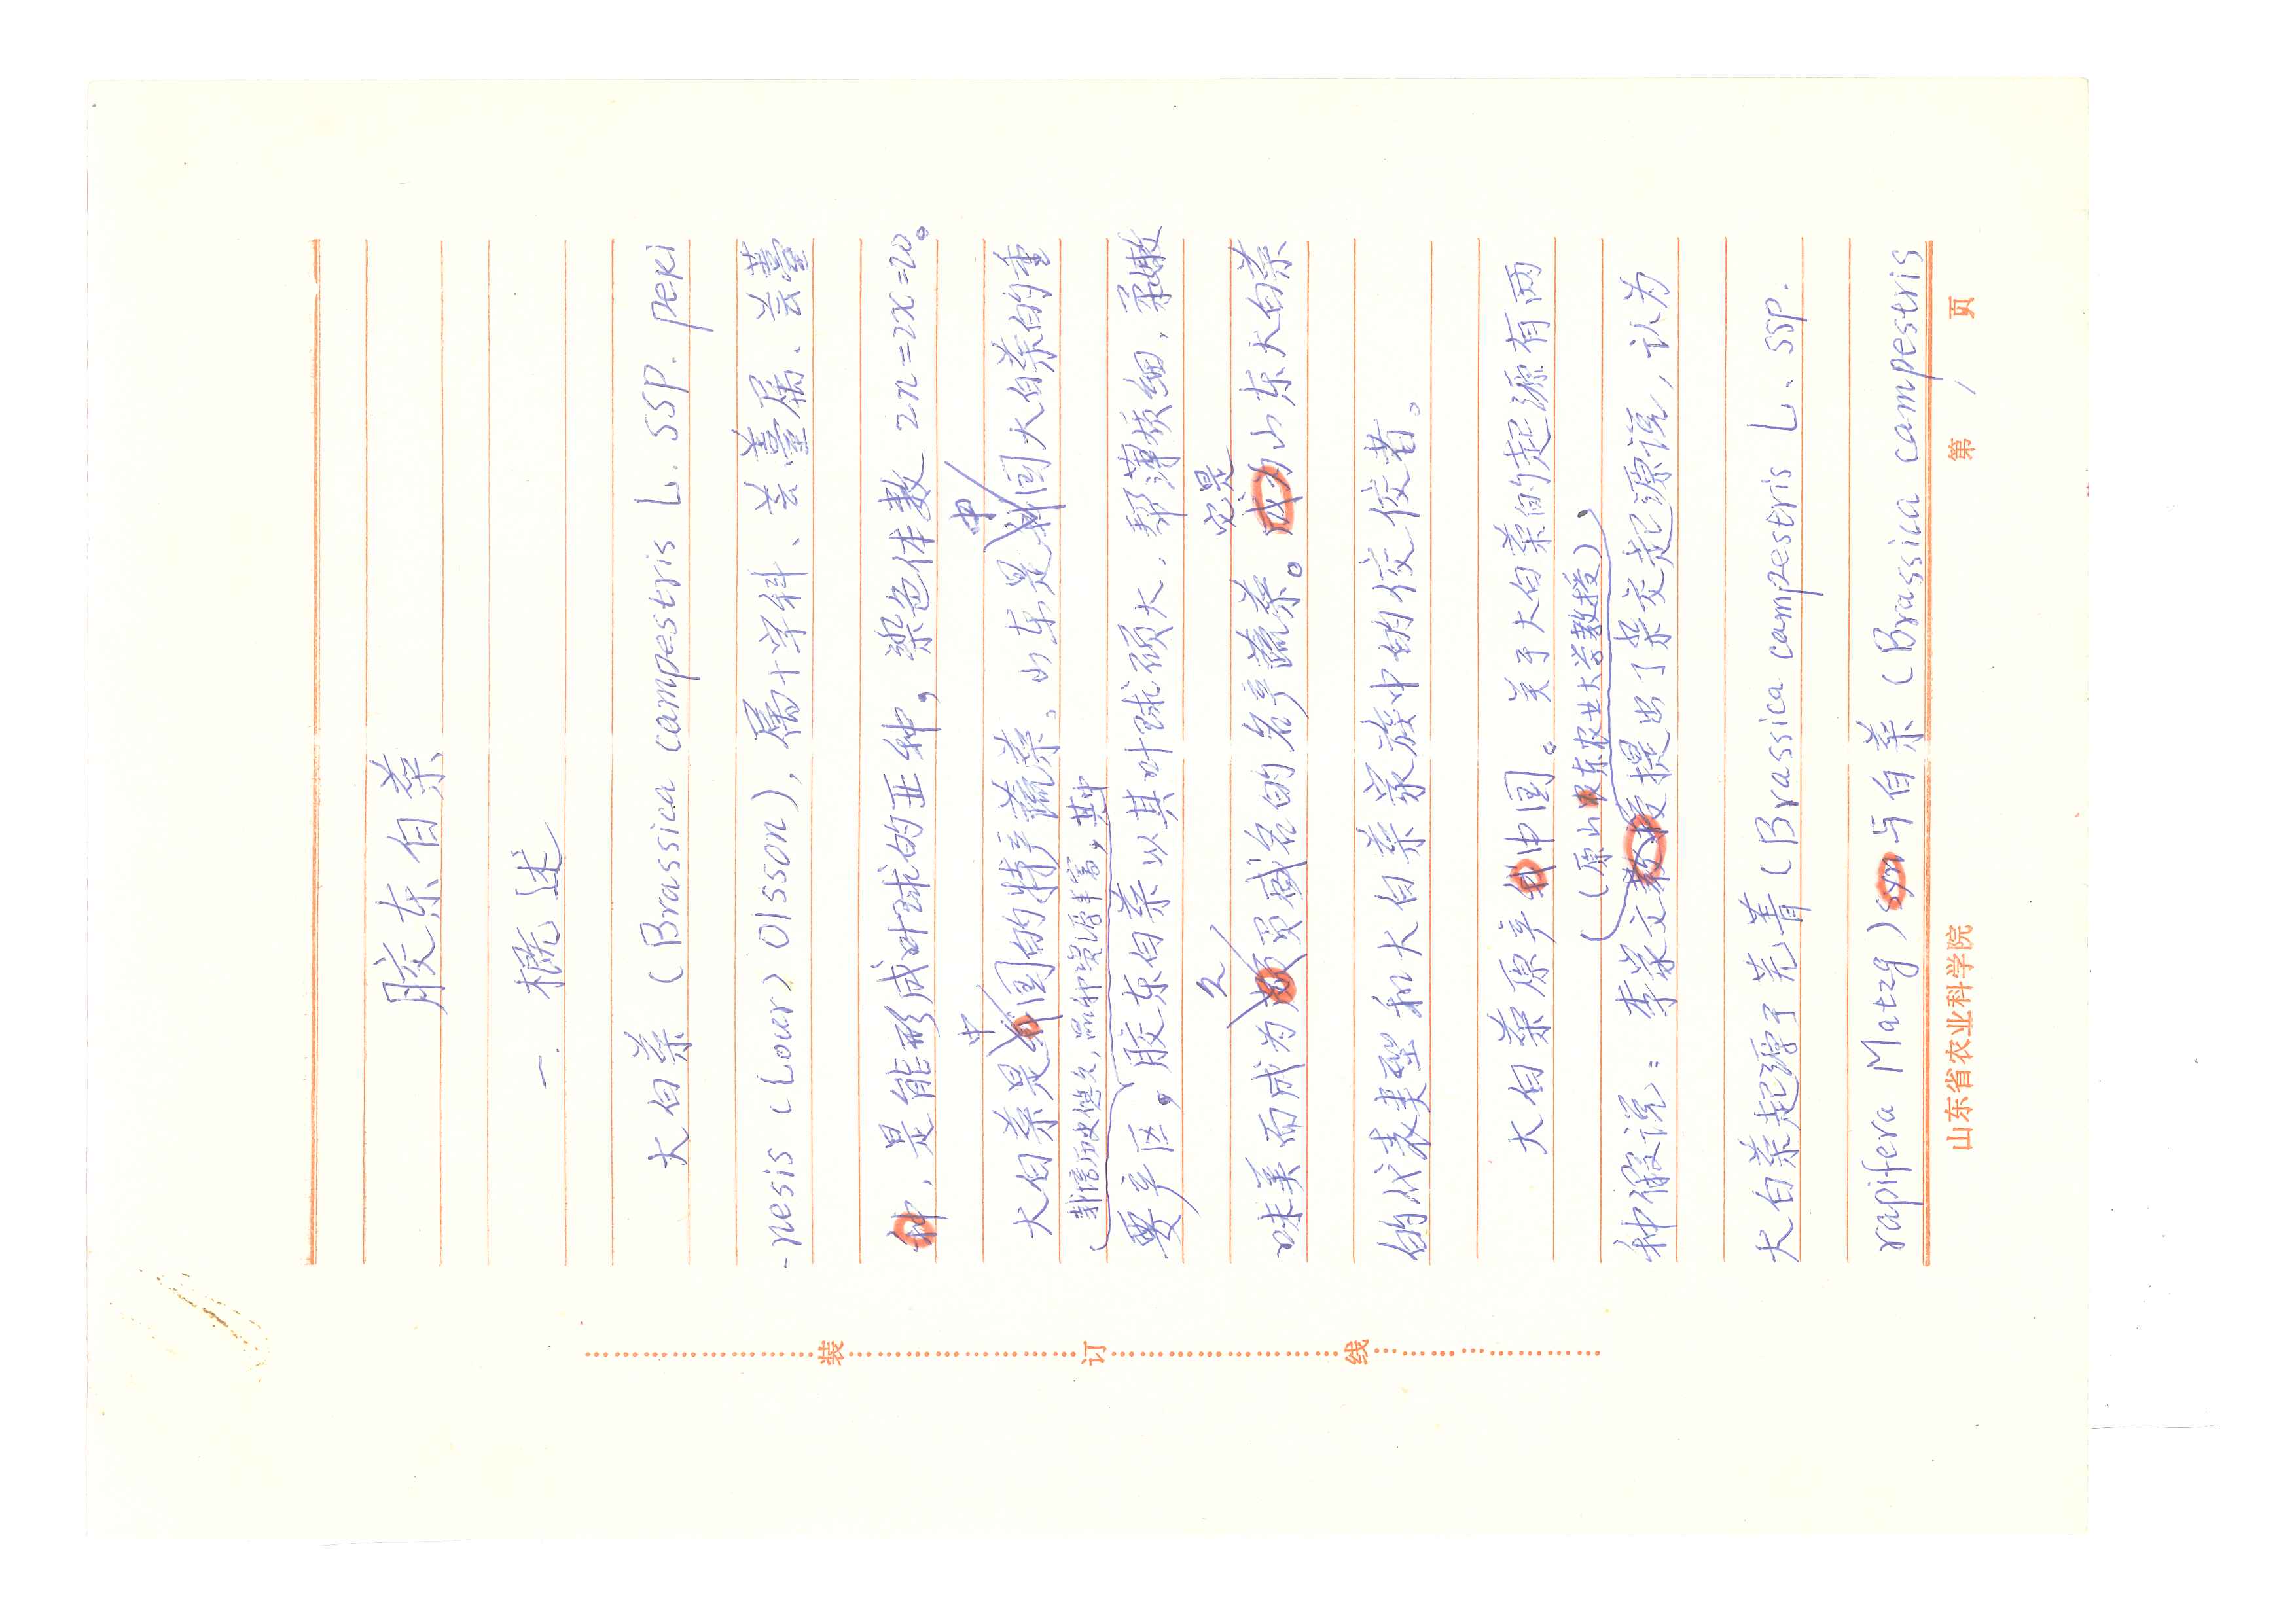 胶东白菜
一. 概述
大白菜（Brassica campestris L. ssp. peki
-nesis (Lour) Olsson)，属十字科、芸薹属、芸薹
种，是能形成叶球的亚种，染色体数 2n=2x=20。
中 中
大白菜是国的特产蔬菜。山东是国大白菜的重
栽培历史悠久，品种资源丰富，其中
要产区。胶东白菜以其叶球硕大，帮薄质细，柔嫩
久 它是
味美而成为负盛名的名产蔬菜。成为山东大白菜
的代表类型和大白菜家族中的佼佼者。
大白菜原产中国。关于大白菜的起源有两
（原山东农业大学教授）
种假说：李家文教授提出了杂交起源说，认为
大白菜起源于芜菁（Brassica campestris L. ssp.
rapifera Matzg）syn与白菜（Brassica campestris
山东省农业科学院 第 1 页
装 订 线